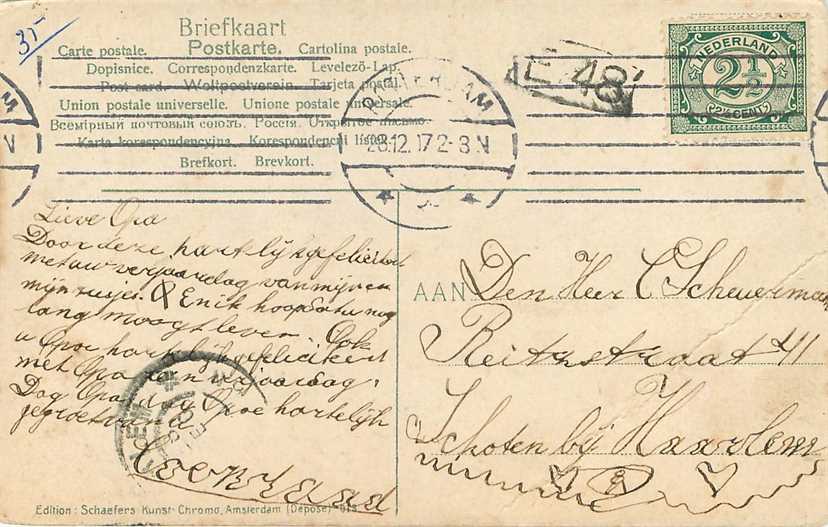 35
Briefkaart
Postkarte.
Carte postale. Cartolina postale.
Dopisnice. Correspondenzkarte. Levelező-Lap.
Post card. Weltpostverein. Tarjeta postal.
Union postale universelle. Unione postale universale.
Всемірный почтовый союзъ. Россія. Открытое письмо.
Karta korespondencyjna. Korespondenční lístek.
Brefkort. Brevkort.
AMSTERDAM
28.12.17 2-3N
E 48
NEDERLAND
2½
2½ CENT
Lieve Opa
Door deze hartelijk gefeliciteerd
met uw verjaardag van mij en
mijn zusje. & En ik hoop dat u nog
lang moogt leven. Ook
u Opoe hartelijk gefeliciteerd
met Opa zijn verjaardag.
Dag Opa en Opoe hartelijk
gegroet van u
AAN
Den Heer C Scheuerman
Reitzstraat 41
Schoten bij Haarlem
Edition: Schaefers Kunst-Chromo, Amsterdam (Déposé)